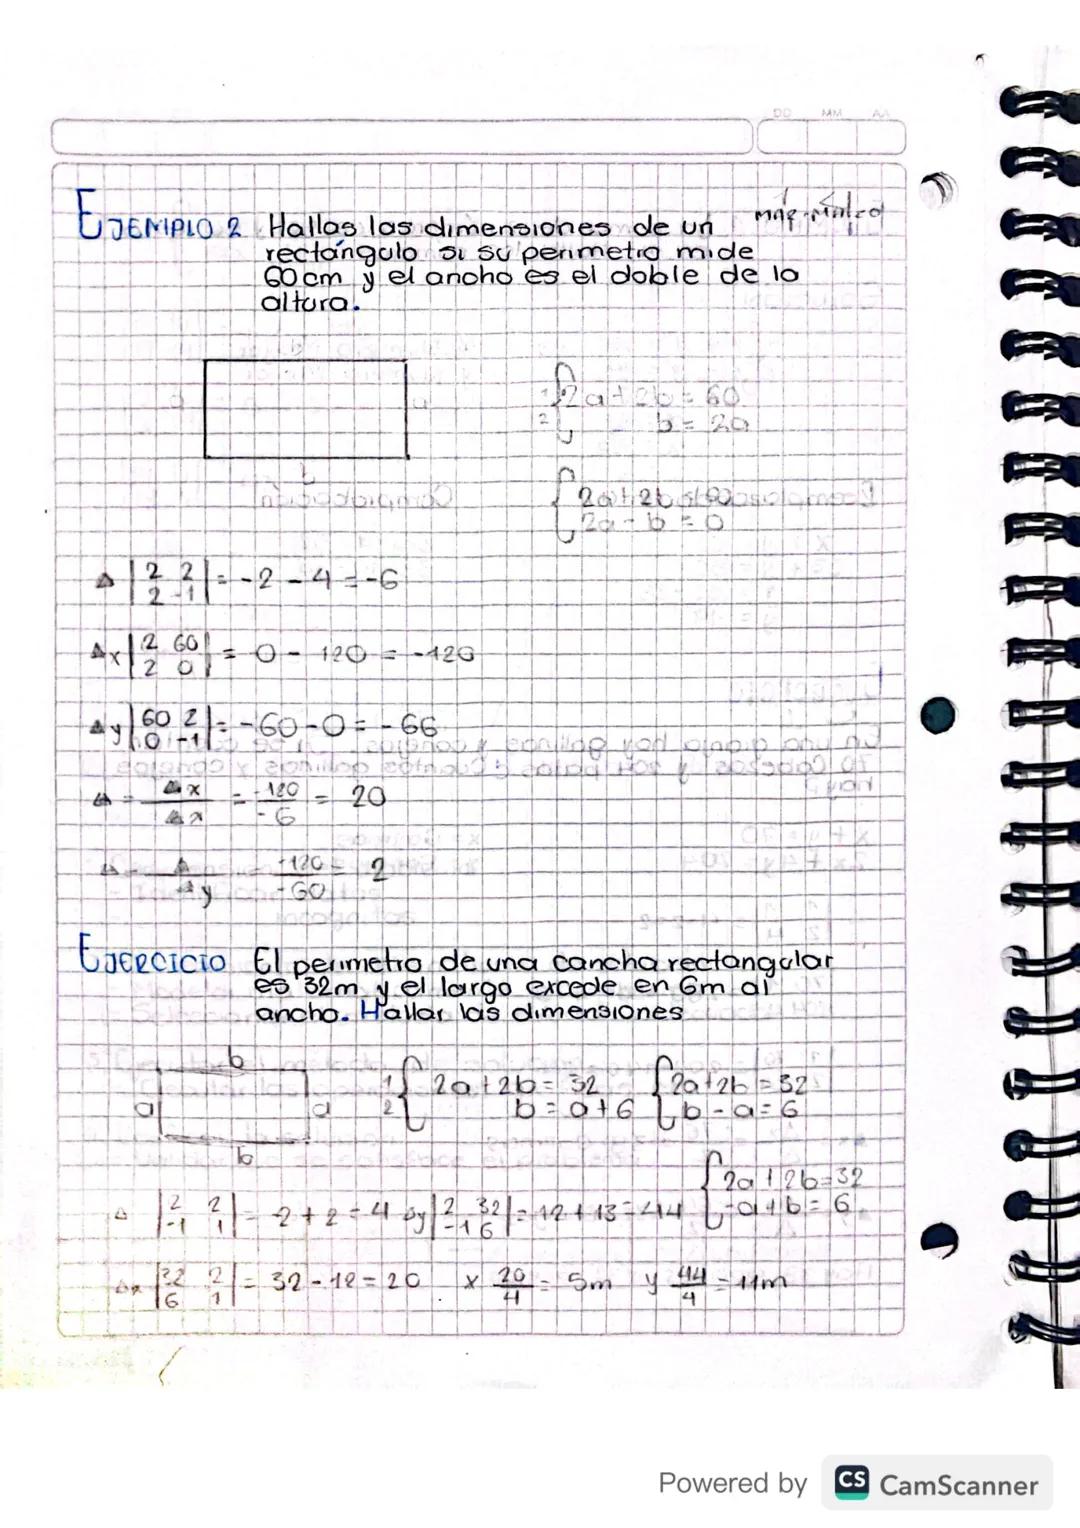 DD MM AA
EJEMPLO 2 Hallas las dimensiones de un
rectángulo si su perimetro mide
60 cm y el ancho es el doble de la
altura.
1 2a+2b=60
2 b=2a
a a
b
2a+2b=60
2a-b=0
Δ |2 2| = -2-4=-6
2 -1
Δx |2 60| = 0 - 120 = -120
2 0
Δy |60 2| = -60-0=-66
0 -1
Δ = Δx = -120 = 20
Δx -6
-120 = 2
Δy -60
EJERCICIO El perimetro de una cancha rectangular
es 32m y el largo excede en 6m al
ancho. Hallar las dimensiones
b
a a
b
1 2a+2b=32
2 b=a+6
2a+2b=32
b-a=6
2a+2b=32
-a+b=6
Δ |2 2| = 2+2=4 Δy |2 32| = 12+13=44
-1 1 -1 6
Δx |32 2| = 32-12=20 x 20 = 5m y 44 = 11m
6 1 4 4
Powered by CS CamScanner